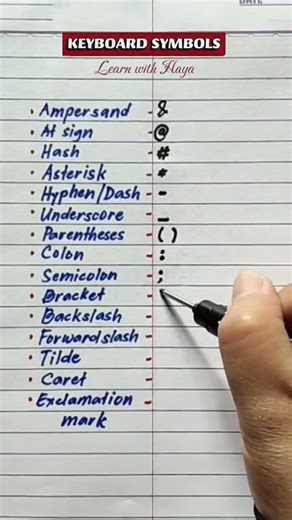 DATE
KEYBOARD SYMBOLS
Learn with Haya
• Ampersand - &
• At sign - @
• Hash - #
• Asterisk - *
• Hyphen/Dash - -
• Underscore - _
• Parentheses - ( )
• Colon - :
• Semicolon - ;
• Bracket -
• Backslash -
• Forwardslash -
• Tilde -
• Caret -
• Exclamation -
mark